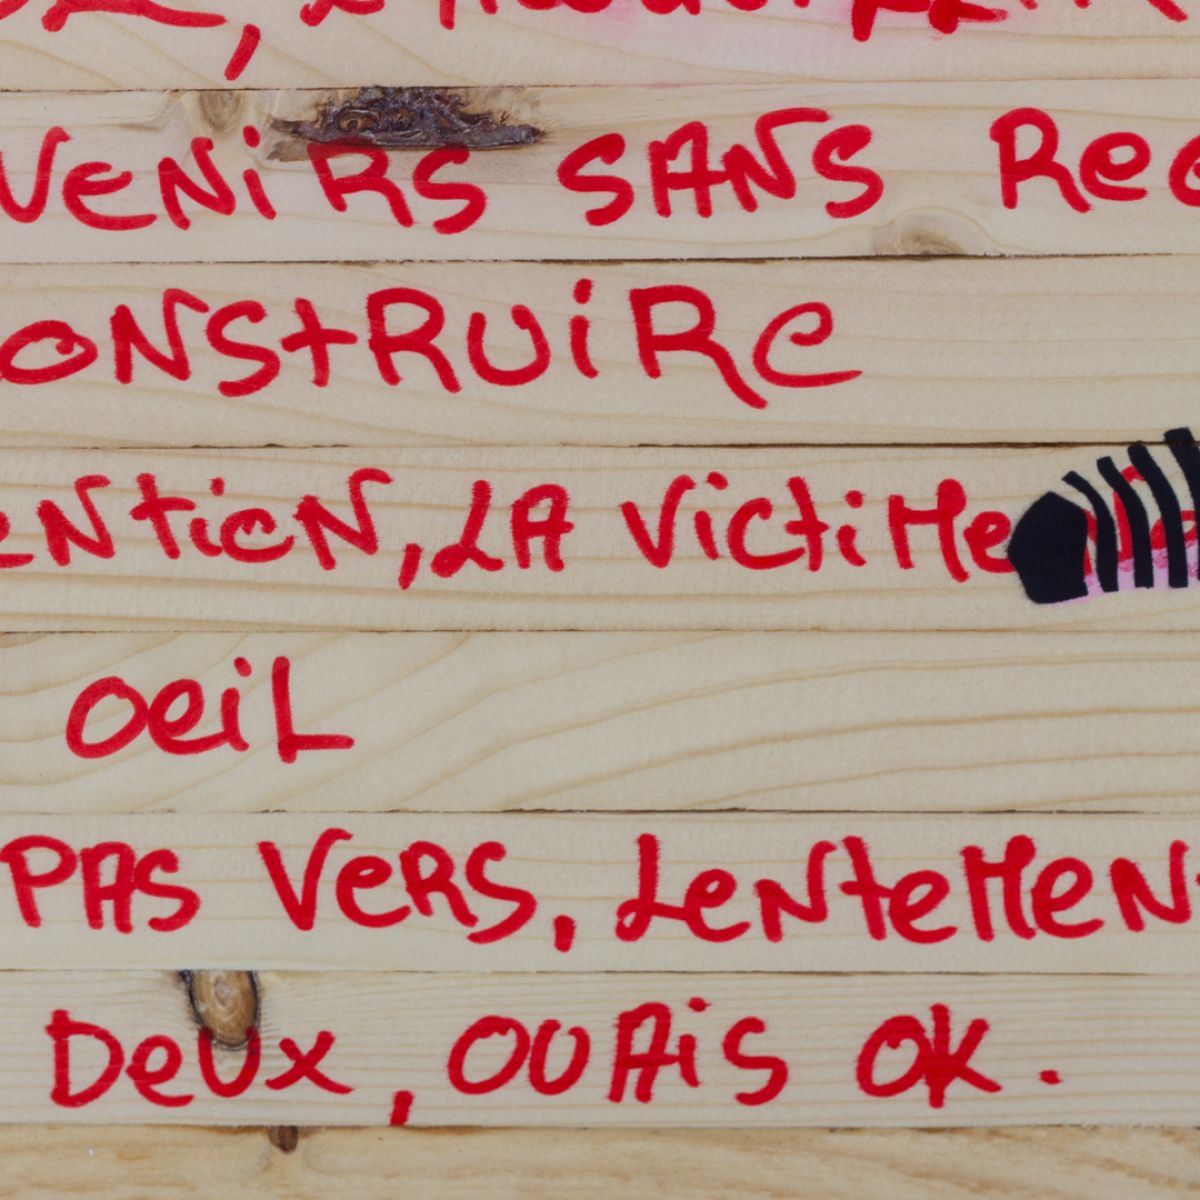 VENIRS SANS REC
ONSTRUIRE
ENTION, LA VICTIME
OEIL
PAS VERS, LENTEMENT
DEUX, OUAIS OK.